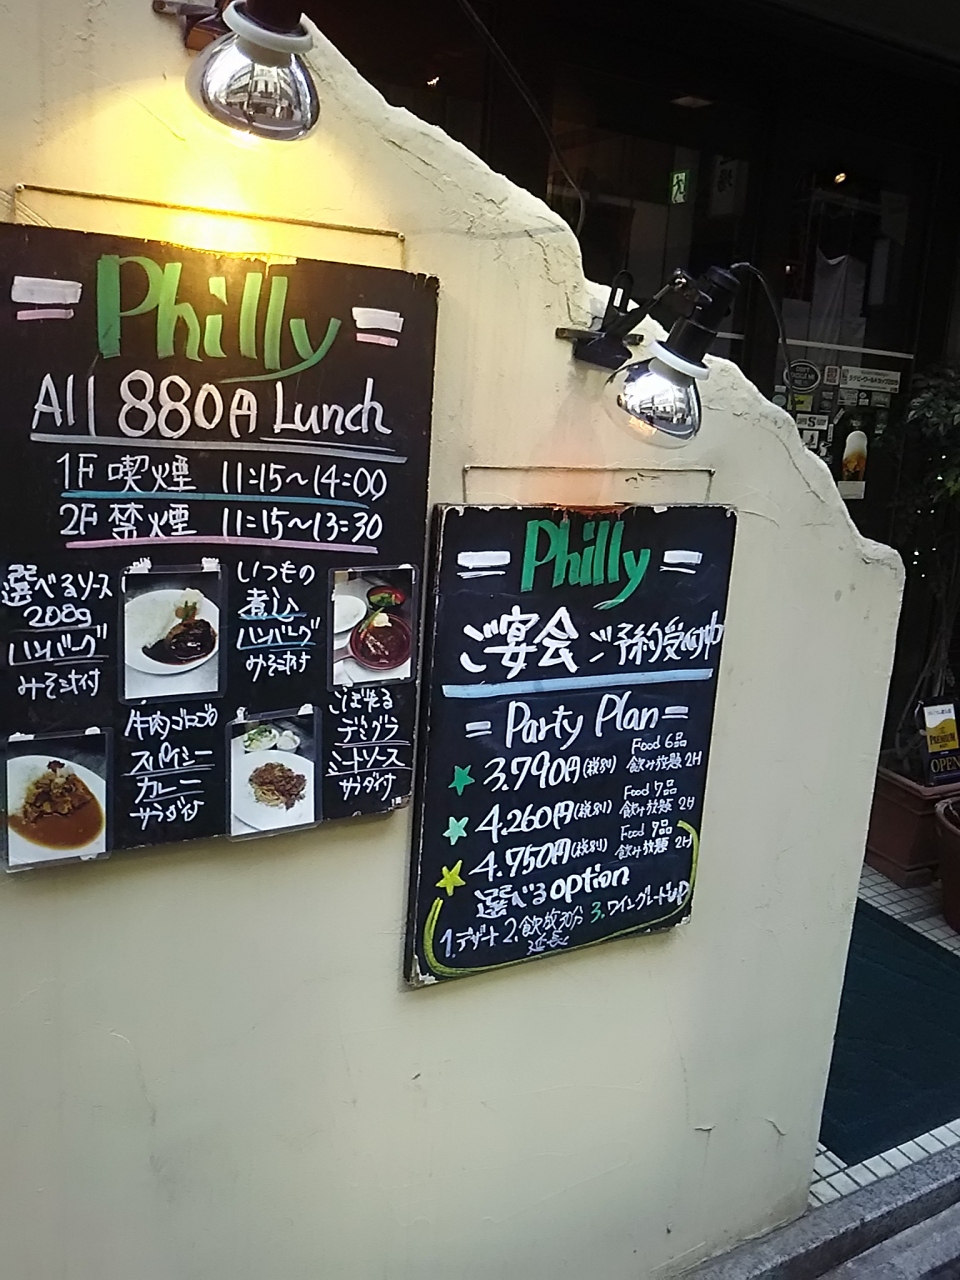 Philly
All 880円 Lunch
1F 喫煙 11:15~14:00
2F 禁煙 11:15~13:30
選べるソース
200g
ハンバーグ
みそ汁付
いつもの
煮込
ハンバーグ
みそ汁付
牛肉ゴロゴロ
スパイシー
カレー
サラダ付
ごぼたる
デミグラ
ミートソース
サラダ付
Philly
ご宴会ご予約受付中
Party Plan
3.790円(税別) Food 6品 飲み放題 2H
4.260円(税別) Food 7品 飲み放題 2H
4.750円(税別) Food 9品 飲み放題 2H
選べるoption
1.デザート 2.飲放30分延長 3.ワイングレードUP
PREMIUM
OPEN